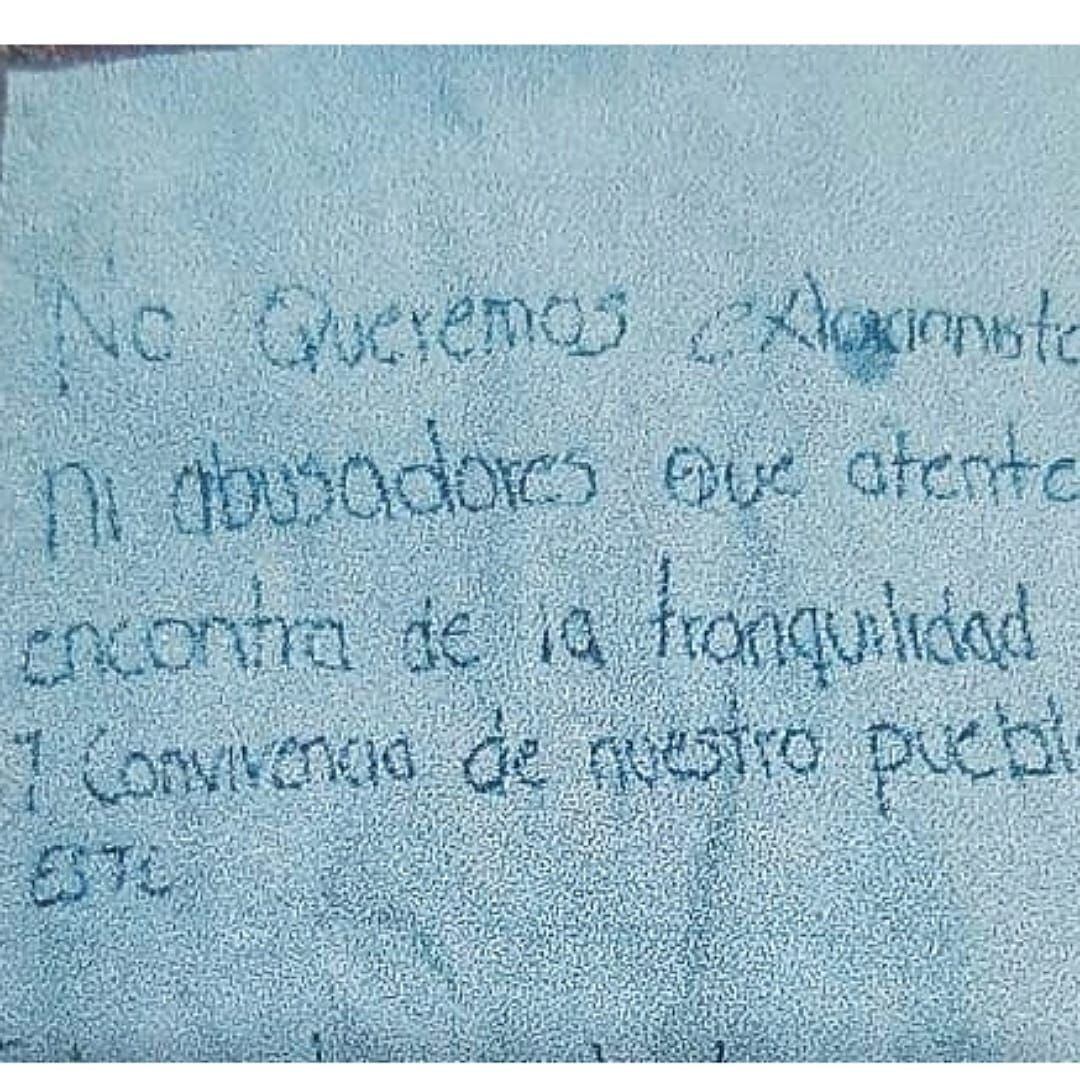 No Queremos
ni abusadores que atente
encontra de la tranquilidad
y Convivencia de nuestro puebl
ESTE